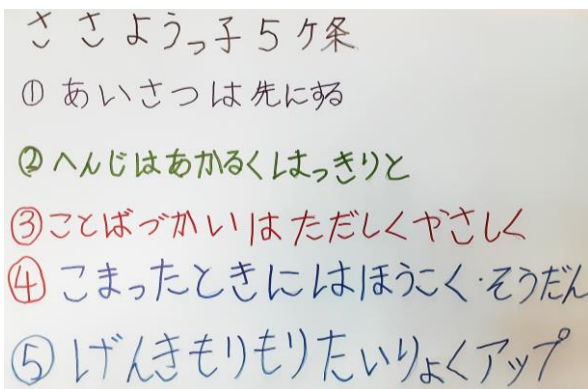 ささようっ子5ケ条
① あいさつは先にする
② へんじはあかるくはっきりと
③ことばづかいはただしくやさしく
④ こまったときにはほうこく・そうだん
⑤ げんきもりもりたいりょくアップ